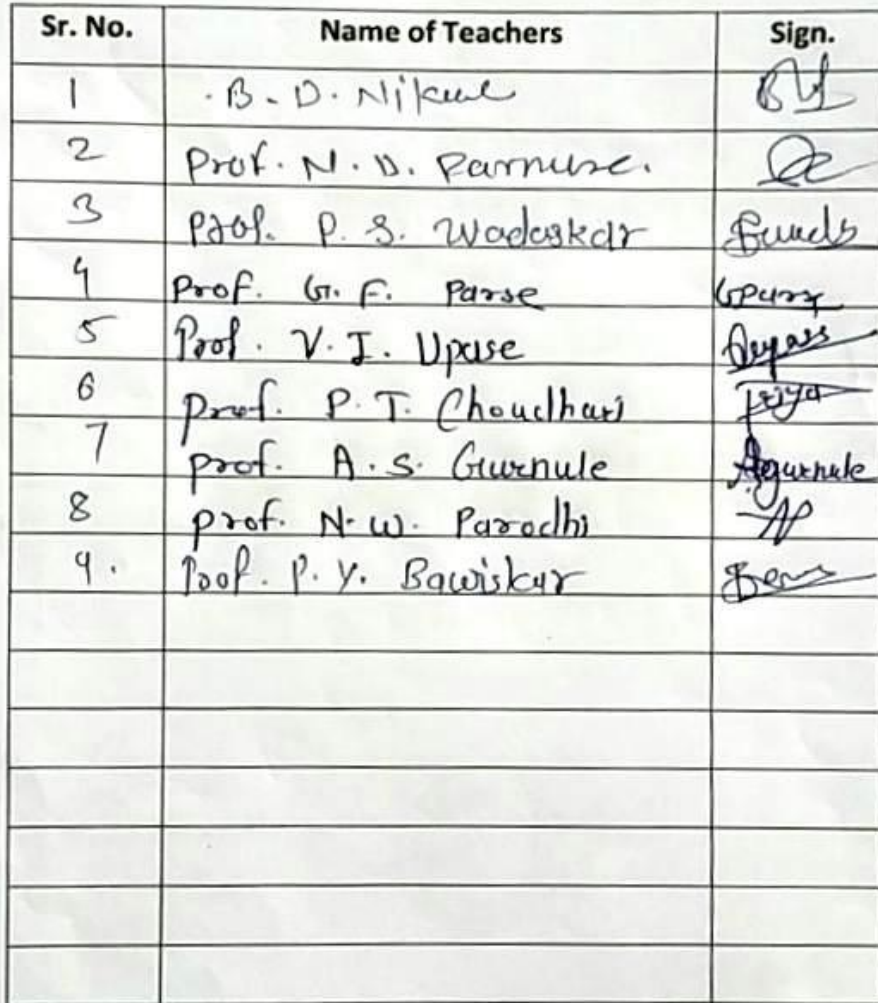 Sr. No. Name of Teachers Sign.
1 B. D. Nikule
2 Prof. N. D. Parnuse.
3 Prof. P. S. Wadaskar
4 Prof. G. F. Parse
5 Prof. V. I. Upase
6 Prof. P. T. Choudhari
7 Prof. A. S. Gurnule Agurnule
8 Prof. N. W. Paradhi
9. Prof. P. Y. Bawiskar